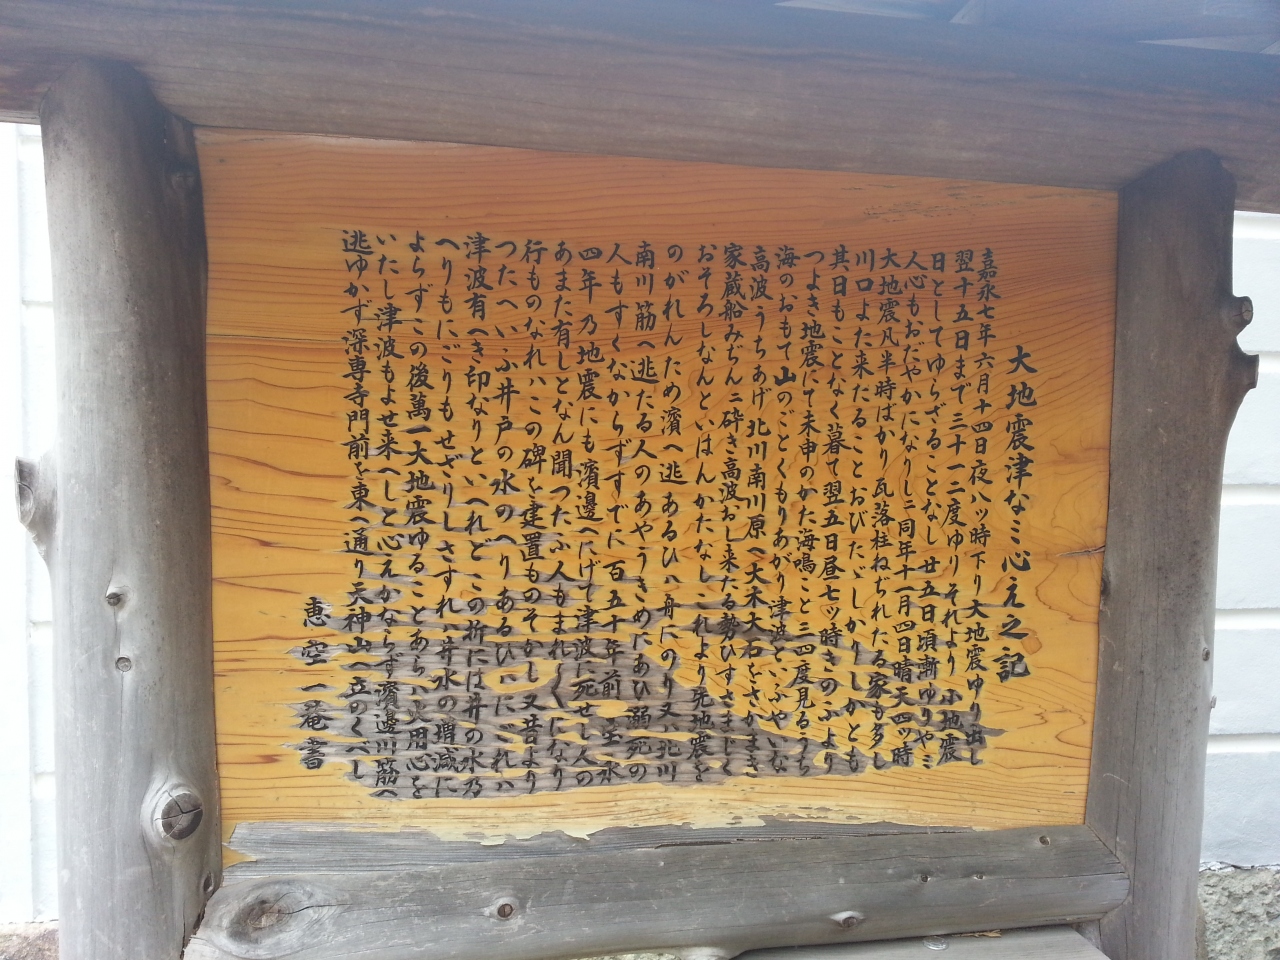 大地震津なミ心え之記
嘉永七年六月十四日夜八ッ時下り大地震ゆり出し
翌十五日まで三十一二度ゆりそれより小地震
日としてゆらざることなし廿五日頃漸ゆりやミ
人心もおだやかになりしニ同年十一月四日晴天四ッ時
大地震凡半時ばかり瓦落柱ねぢれたる家も多し
川口よた来たることおびたゞしかりしかとも
其日もことなく暮て翌五日昼七ッ時きのふより
つよき地震にて未申のかた海鳴こと三四度見るうち
海のおもて山のごとくもりあがり津波といふやいな
高波うちあげ北川南川原へ大木大石をさかまき
家蔵船みぢんニ砕き高波おし来たる勢ひすさまじく
おそろしなんといはんかたなしこれより先地震を
のがれんため濱へ逃あるひハ舟にのり又ハ北川
南川筋へ逃たる人のあやうきめにあひ溺死の
人もすくなからずすでに百五十年前宝永
四年乃地震にも濱邊へにげて津波に死せし人の
あまた有しとなん聞つたふ人もまれ〱になり
行ものなれハこの碑を建置ものそかし又昔より
つたへいふ井戸の水のへりあるひハにごれハ
津波有へき印なりといへれどこの折には井の水乃
へりもにごりもせざりしさすれハ井水の増減に
よらずこの後萬一大地震ゆることあらハ火用心を
いたし津波もよせ来へしと心えかならず濱邊川筋へ
逃ゆかず深専寺門前を東へ通り天神山へ立のくべし
恵空一菴書